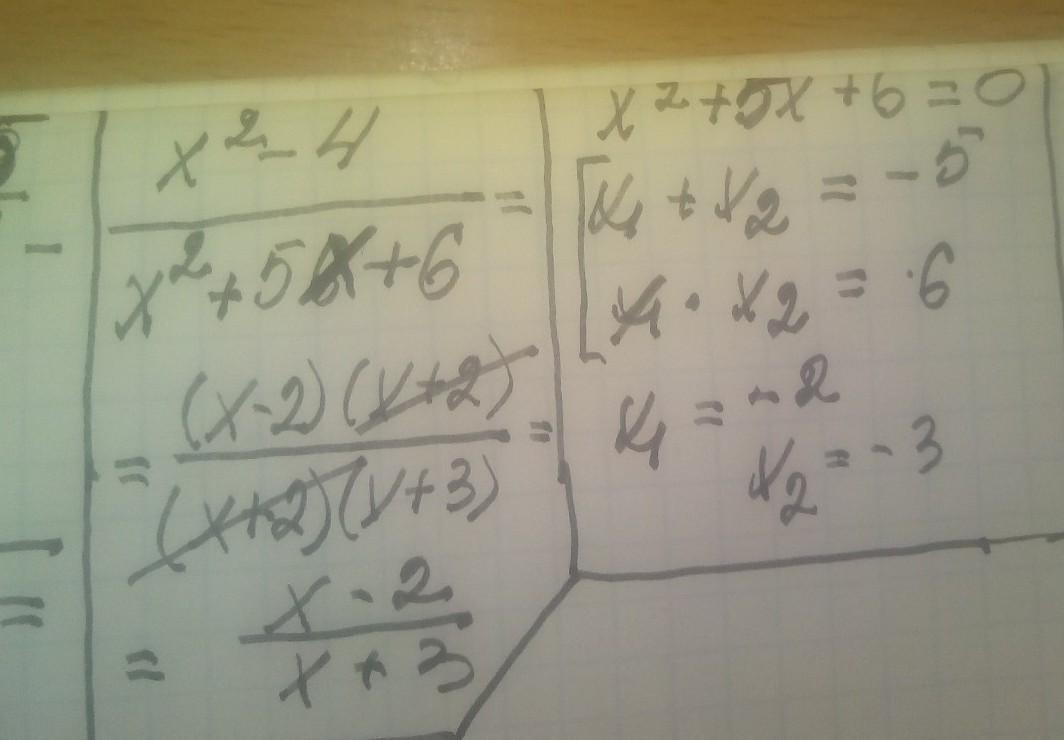 x² - 4
x² + 5x + 6 =
= (x-2)(x+2)
(x+2)(x+3) =
= x - 2
x + 3
x² + 5x + 6 = 0
x₁ + x₂ = -5
x₁ · x₂ = 6
x₁ = -2
x₂ = -3